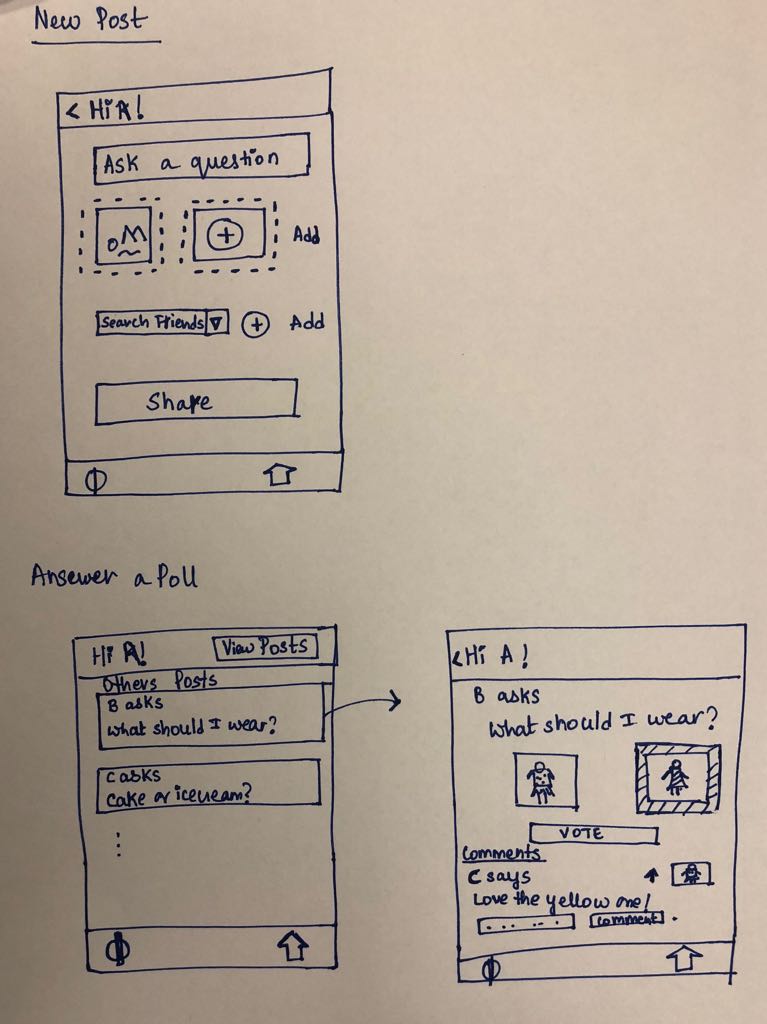 New Post
< Hi A!
Ask a question
Add
Search Friends
Add
Share
Answer a Poll
Hi A!
View Posts
Others Posts
B asks
What should I wear?
C asks
Cake or icecream?
< Hi A!
B asks
What should I wear?
VOTE
Comments
C says
Love the yellow one!
comment